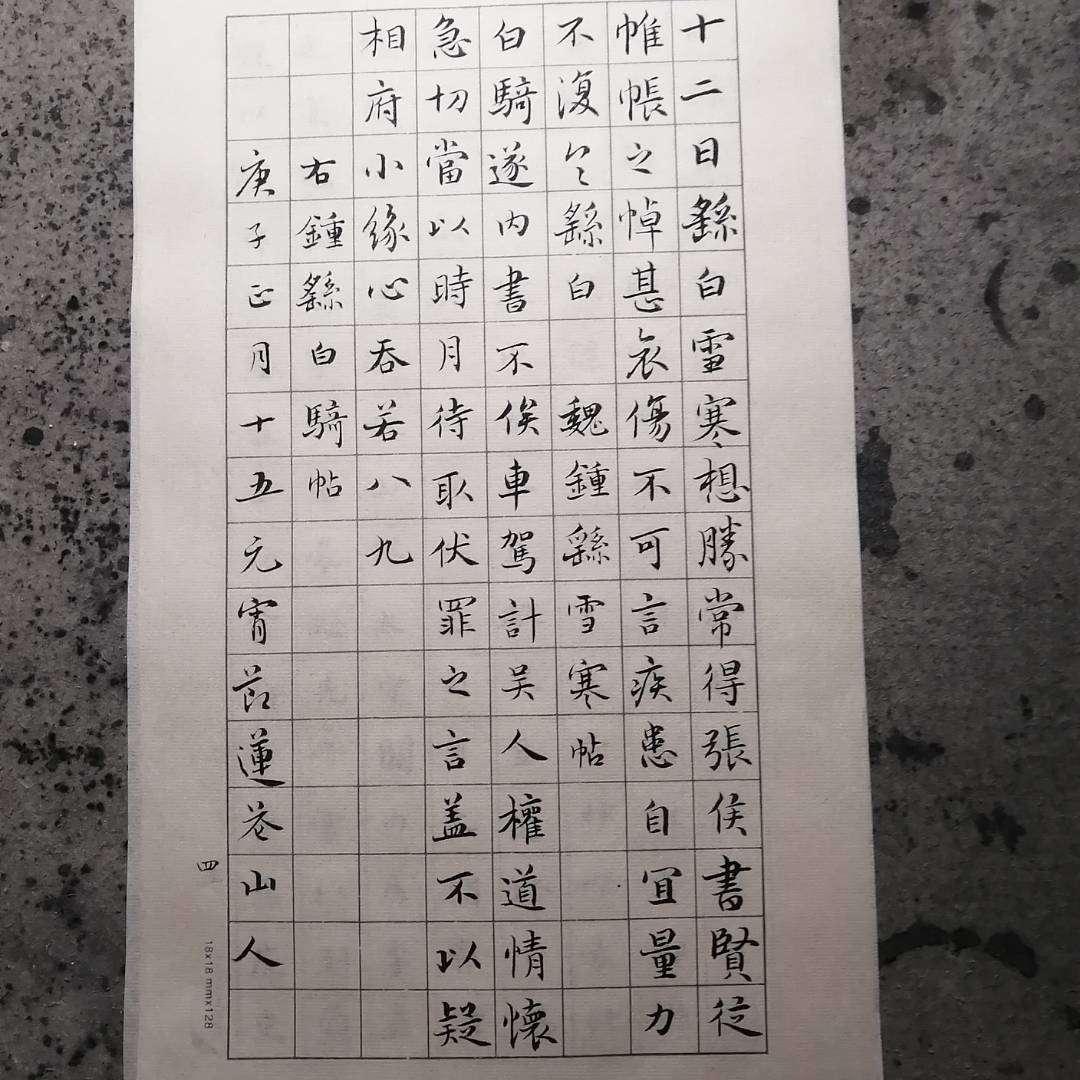 十二日繇白雪寒想勝常得張侯書賢從
帷帳之悼甚哀傷不可言疾患自宜量力
不復具繇白 魏鍾繇雪寒帖
白騎遂內書不俟車駕計吴人權道情懷
急切當以時月待取伏罪之言盖不以疑
相府小緣心吞若八九
右鍾繇白騎帖
庚子正月十五元宵節蓮花山人
四
18x18 mmx128